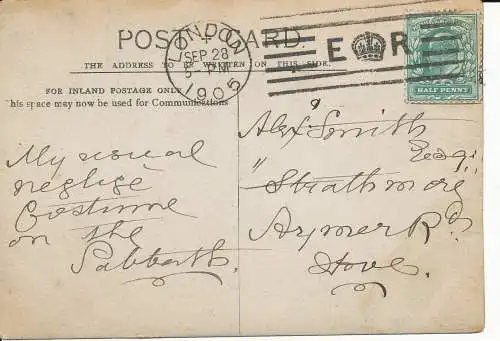 POST CARD.
LONDON
SEP 28
5- PM
1905
E R
HALF PENNY
THE ADDRESS TO BE WRITTEN ON THIS SIDE.
FOR INLAND POSTAGE ONLY
his space may now be used for Communications
My usual
neglige
Costume
on the
Sabbath.
Alex Smith
Esq:
"Strathmore
Aymer Rd
Hove.